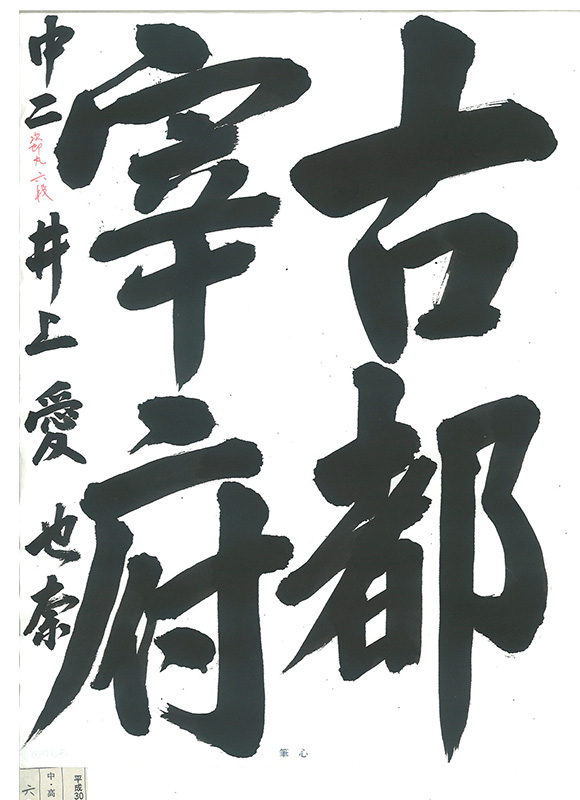 古都
宰府
中二
六段
井上愛也奈
心筆
平成30
中・高
六